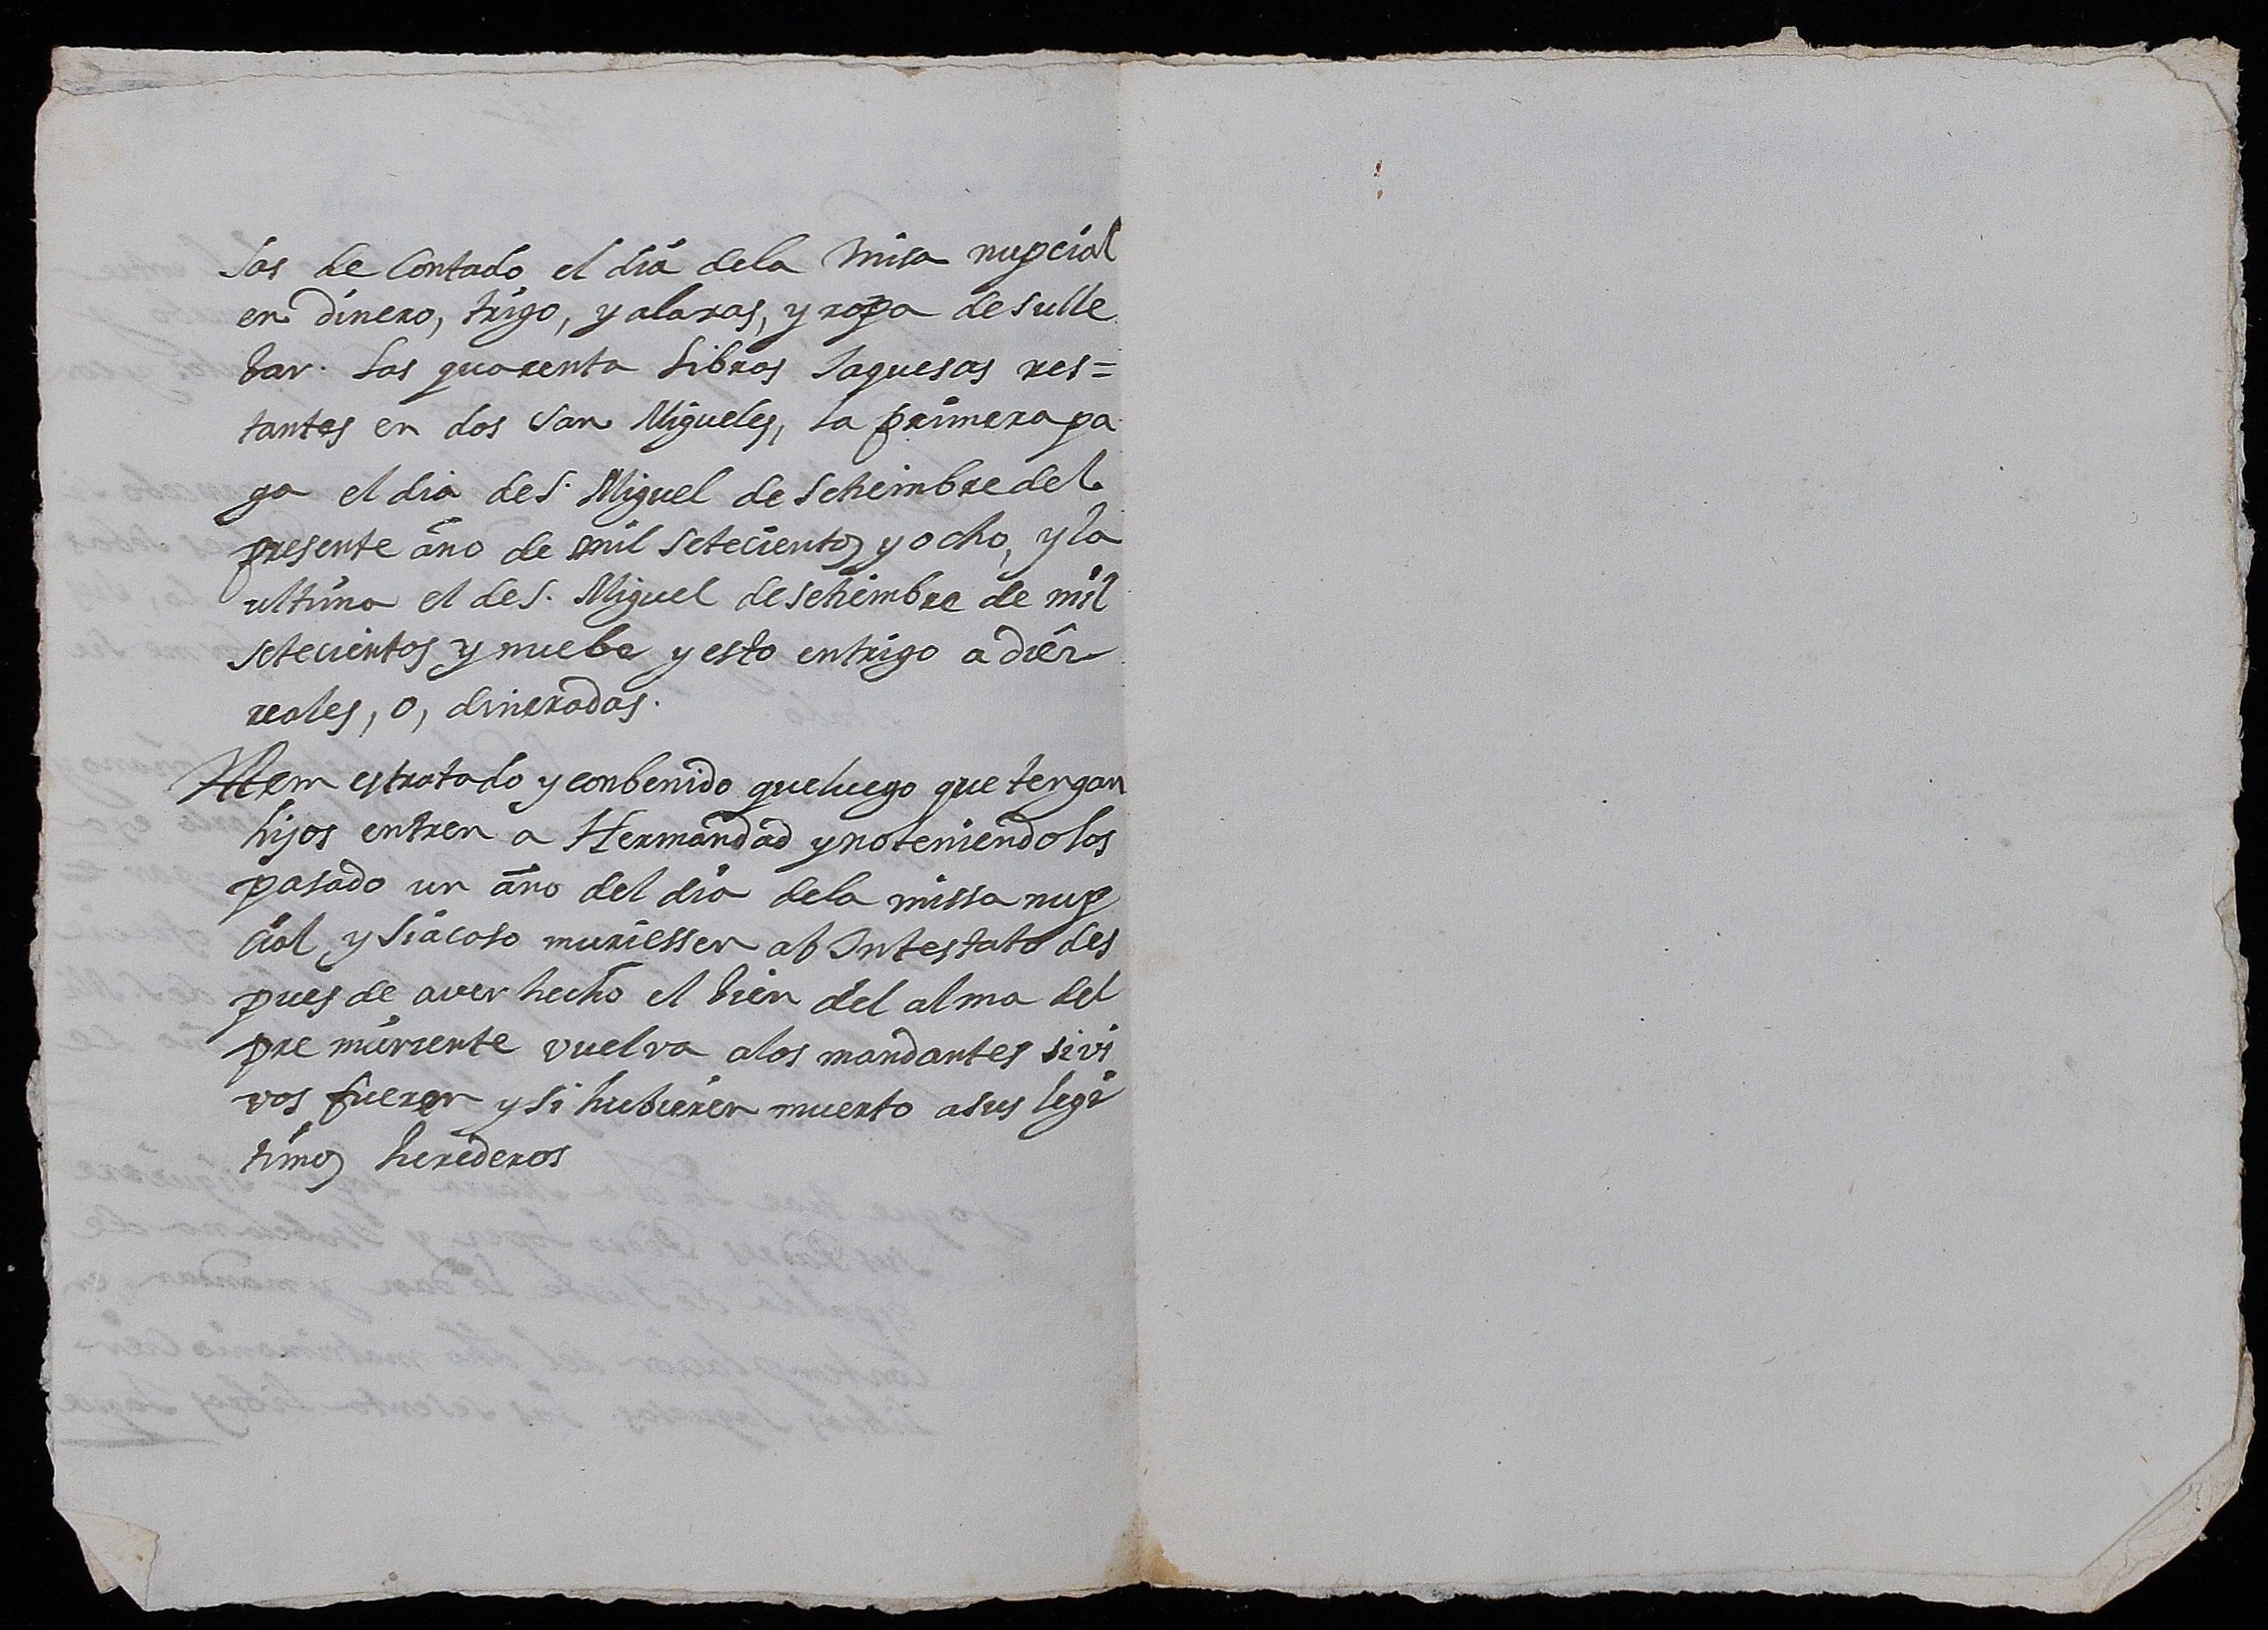 sas de Contado el dia dela misa nupcial
en dinero, trigo, y alaxas, y ropa de sulle
bar. Las quarenta Libras Jaquesas res=
tantes en dos San Migueles, la primera pa
ga el dia de S. Miguel de Setiembre del
presente año de mil setecientos y ocho, y la
ultima el de S. Miguel de setiembre de mil
setecientos y nuebe y esto entrigo a diez
reales, o, dineradas.
Item estratado y conbenido que luego que tengan
hijos entren a Hermandad y noteniendolos
pasado un año del dia dela missa nup
cial y siacaso muriessen ab Intestato des
pues de aver hecho el bien del alma del
pre muriente vuelva alos mandantes si vi
vos fueren y si hubieren muerto asus legi
timos herederos